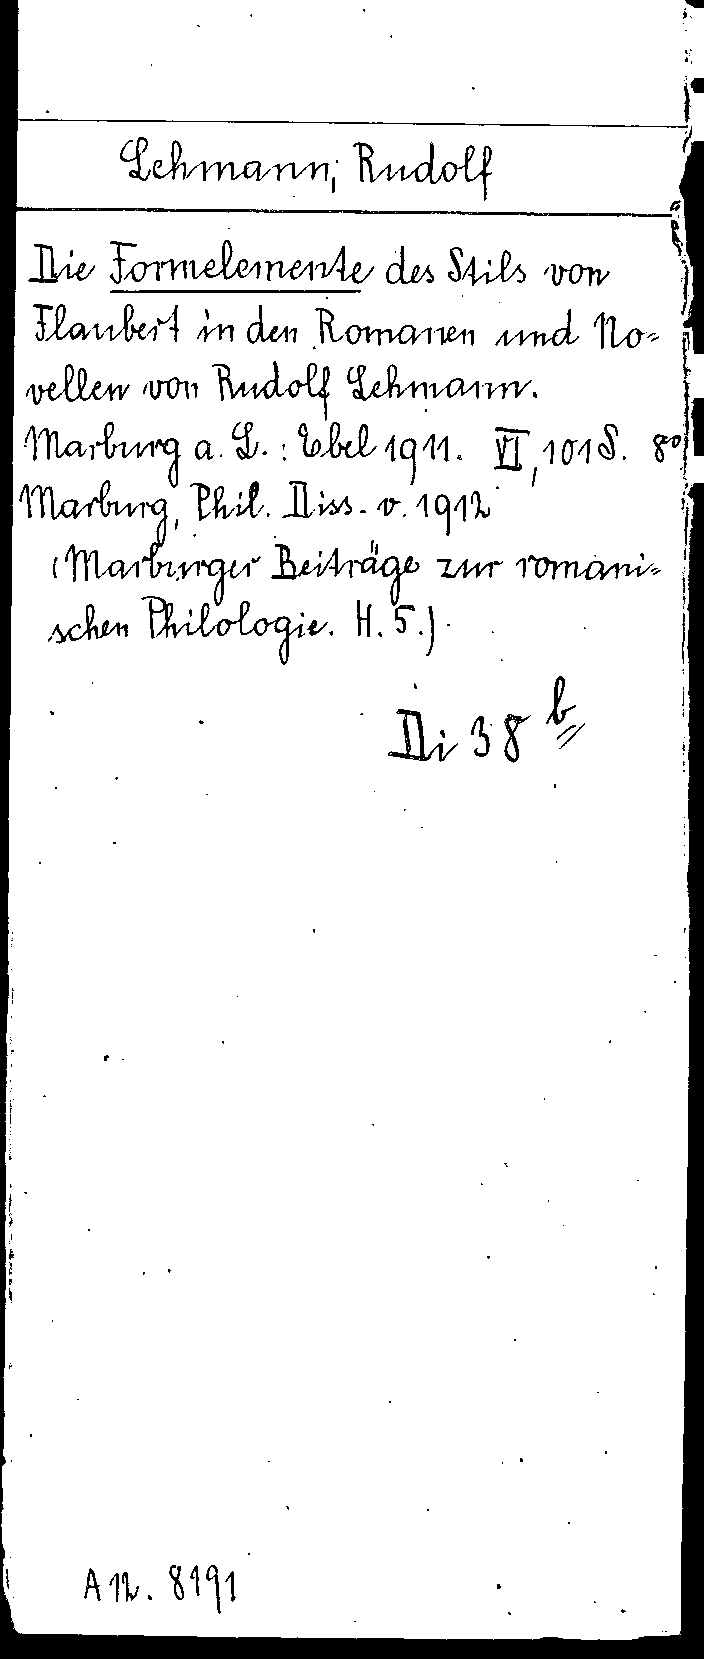 Lehmann, Rudolf
Die Formelemente des Stils von
Flaubert in den Romanen und No-
vellen von Rudolf Lehmann.
Marburg a. L.: Ebel 1911. VI, 101 S. 8°
Marburg, Phil. Diss. v. 1912
(Marburger Beiträge zur romani-
schen Philologie. H. 5.)
Di 38 b
A 12. 8191